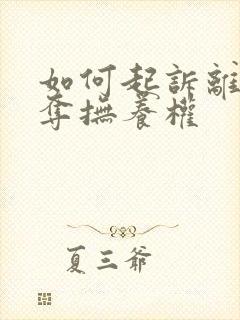 如何起訴離
奪撫養權
夏三爺